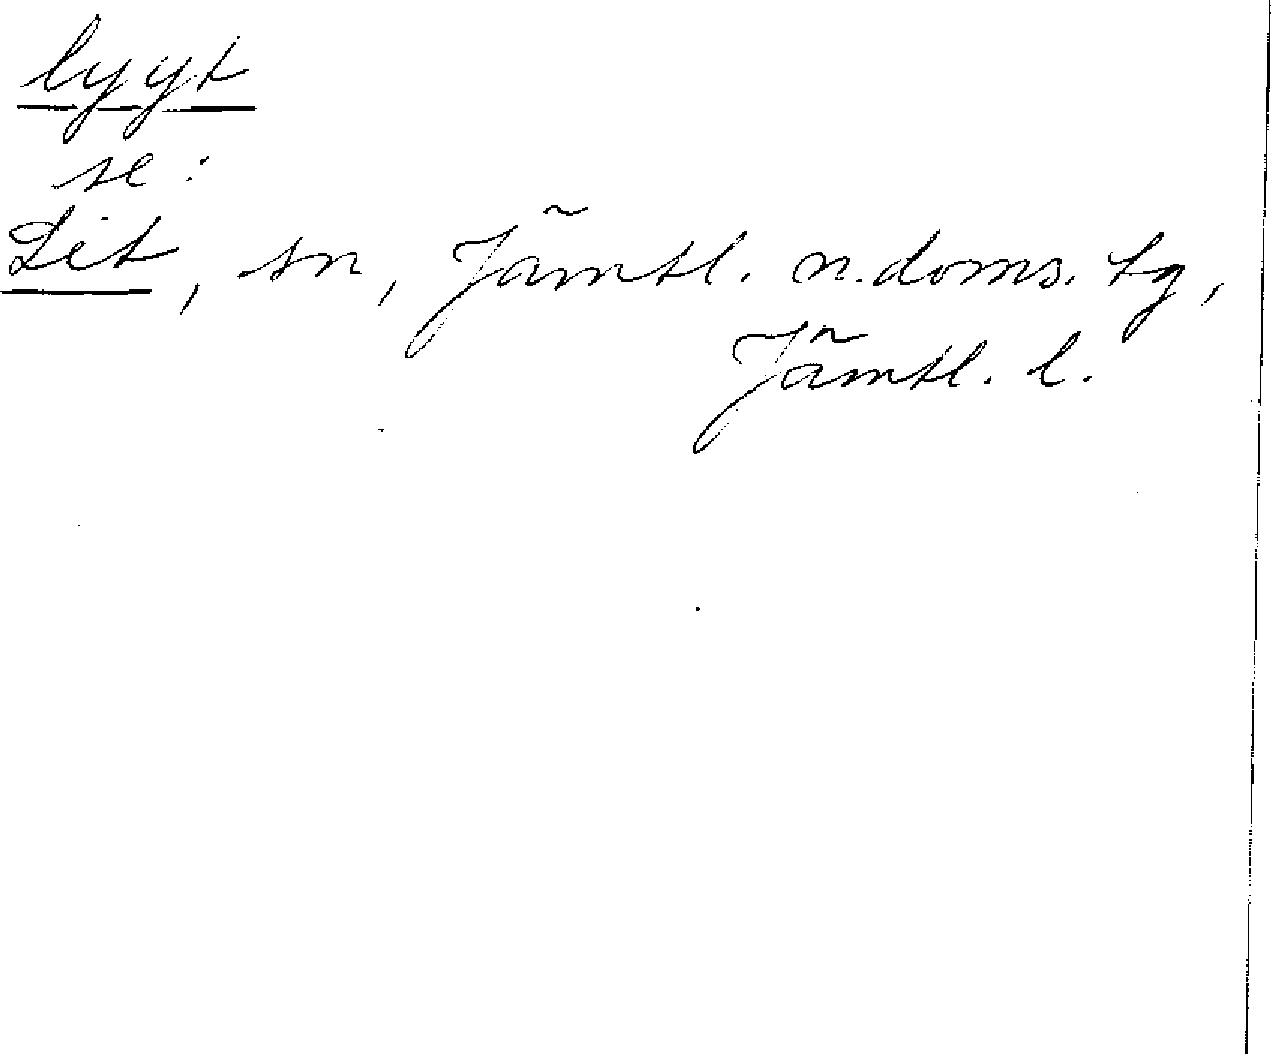 lyyt
se:
Lit, sn, Jämtl. n. doms. tg,
Jämtl. l.